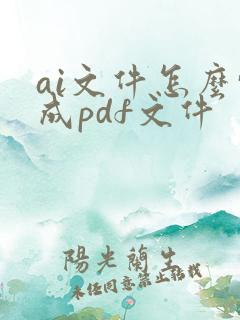 ai文件怎麼
成pdf文件
陽光蘭生
未经同意禁止转载